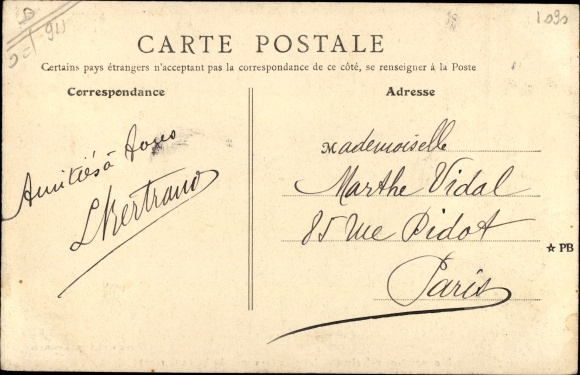 1090
CARTE POSTALE
Certains pays étrangers n'acceptant pas la correspondance de ce côté, se renseigner à la Poste
Correspondance
Amitiés à tous
LBertrand
Adresse
Mademoiselle
Marthe Vidal
85 rue Didot
Paris
☆ PB